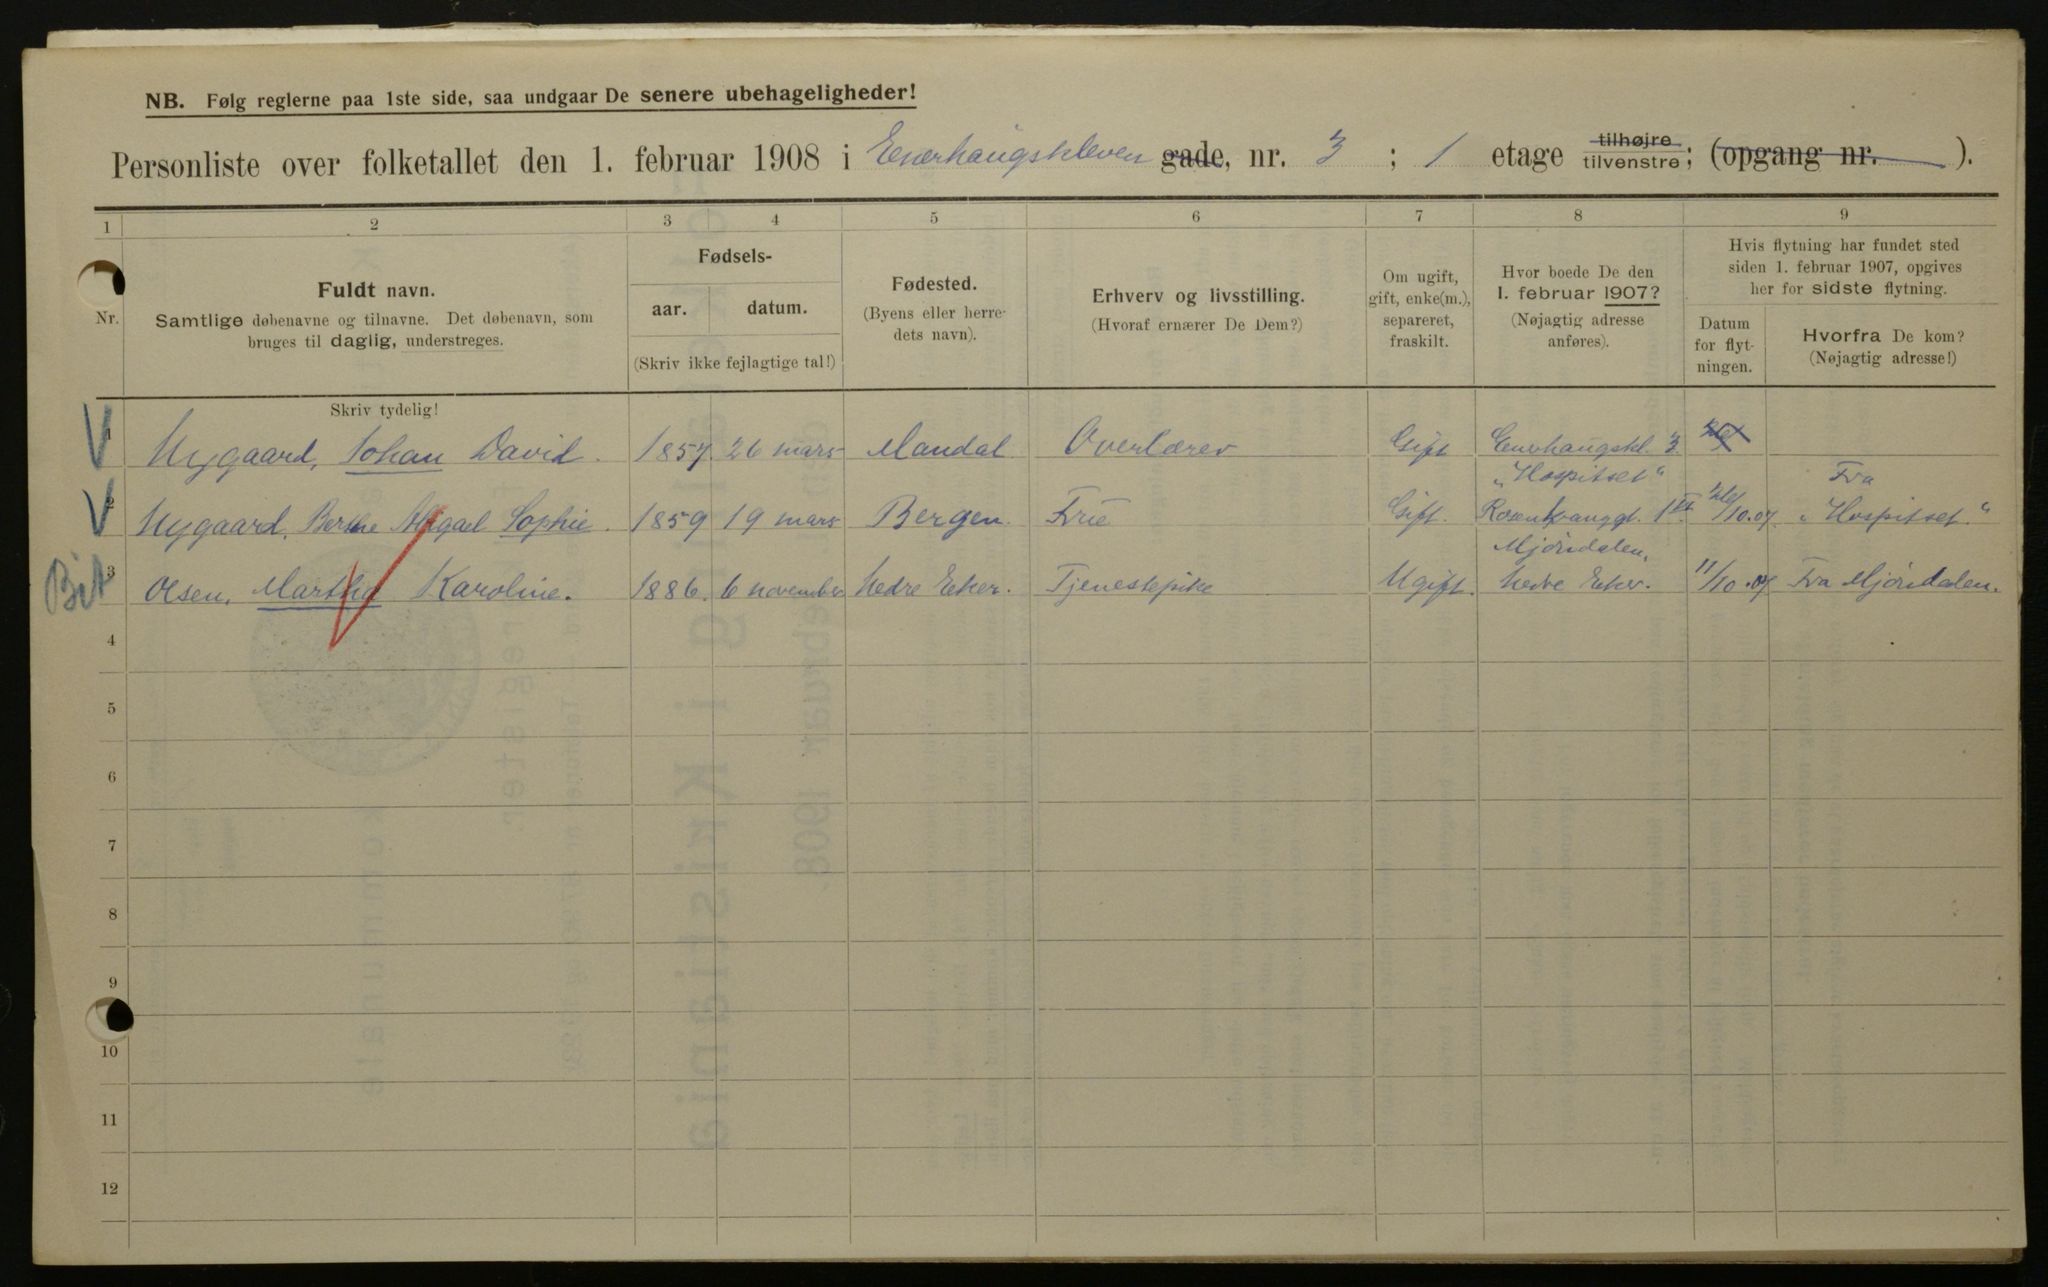 NB. Følg reglerne paa 1ste side, saa undgaar De senere ubehageligheder!
Personliste over folketallet den 1. februar 1908 i Enerhaugskleven gade, nr. 3 ; 1 etage tilhøjre tilvenstre; (opgang nr. ).
1 2 3 4 5 6 7 8 9
Nr.
Fuldt navn.
Samtlige døbenavne og tilnavne. Det døbenavn, som
bruges til daglig, understreges.
Fødsels-
aar. datum.
(Skriv ikke fejlagtige tal!)
Fødested.
(Byens eller herre-
dets navn).
Erhverv og livsstilling.
(Hvoraf ernærer De Dem?)
Om ugift,
gift, enke(m.),
separeret,
fraskilt.
Hvor boede De den
1. februar 1907?
(Nøjagtig adresse
anføres).
Hvis flytning har fundet sted
siden 1. februar 1907, opgives
her for sidste flytning.
Datum
for flyt-
ningen.
Hvorfra De kom?
(Nøjagtig adresse!)
Skriv tydelig!
V 1 Nygaard, Johan David. 1857. 26 mars Mandal Overlærer Gift Enerhaugskl. 3.
"Hospitset" Fra
V 2 Nygaard, Berthe Abigael Sophie. 1859 19 mars Bergen. Frue Gift. Rosenkranzgt. 1 26/10.07 "Hospitset."
Mjöndalen,
Bit 3 Olsen, Martha Karoline. 1886. 6 november Nedre Eker. Tjenestepike Ugift. Nedre Eker. 11/10.07 Fra Mjöndalen.
4
5
6
7
8
9
10
11
12